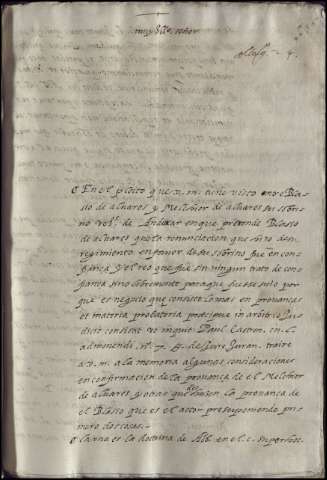 muy Ille. señor
C En el pleito que v. m. tiene visto entre Blas
de alvares y Melchor de alvares su sobri
no vºs. de Andujar en que pretende Blasco
de alvares que la renunciacion que hizo de su
regimiento en favor de su sobrino fue en con
fiança y el reo que fue sin ningun trato de con
fiança sino libremente para que fuesse suio por
que es negocio que consiste lo mas en provanças
et materia probatoria precipue in arbitrio Ju
dicis consistit ut inquit Paul. Castren. en. l.
admonendi. nº. 7. ff. de Jure Juran. traire
a v. m. a la memoria algunas consideraciones
en confirmacion de la provança de el Melchor
de alvares y otras que des hasen la provança de
el Blasco que es el actor presuponiendo pri
mero dos cosas.
C la una es la doctrina de Alb. en el. c.